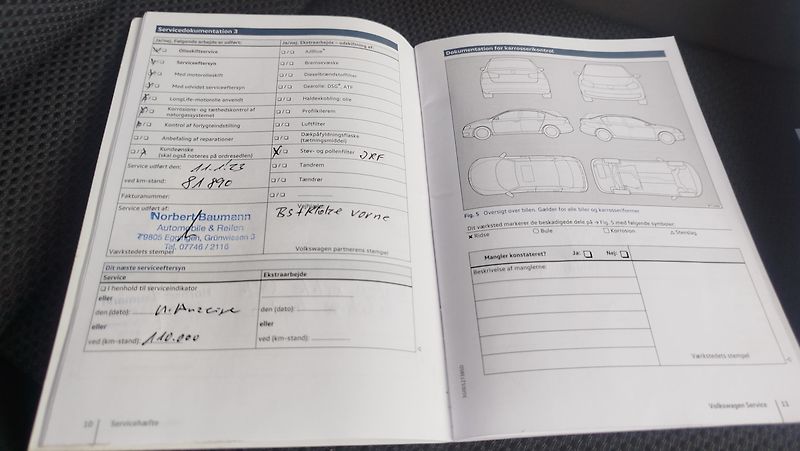 Servicedokumentation 3
Ja/nej. Følgende arbejde er udført:
Olieskiftservice
Serviceeftersyn
Med motorolieskift
Med udvidet serviceeftersyn
LongLife-motorolie anvendt
Korrosions- og tæthedskontrol af
naturgassystemet
Kontrol af forlygteindstilling
Anbefaling af reparationer
Kundeønske
(skal også noteres på ordresedlen)
Service udført den: 11.1.23
ved km-stand: 81890
Fakturanummer:
Service udført af:
Norbert Baumann
Automobile & Reifen
79805 Eggingen, Grünwiesen 3
Tel. 07746 / 2116
Værkstedets stempel
Ja/nej. Ekstraarbejde – udskiftning af:
AdBlue®
Bremsevæske
Dieselbrændstoffilter
Gearolie: DSG®, ATF
Haldexkobling: olie
Profilkilerem
Luftfilter
Dækpåfyldningsflaske
(tætningsmiddel)
Støv- og pollenfilter
Tandrem
Tændrør
vorne
Volkswagen partnerens stempel
Dit næste serviceeftersyn
Service
Ekstraarbejde
I henhold til serviceindikator
eller
den (dato): n. Anzeige
den (dato):
eller
eller
ved (km-stand): 110.000
ved (km-stand):
10
Servicehæfte
Dokumentation for karrosserikontrol
Fig. 5 Oversigt over bilen. Gælder for alle biler og karrosseriformer
Dit værksted markerer de beskadigede dele på → Fig. 5 med følgende symboler:
× Ridse
○ Bule
□ Korrosion
△ Stenslag
Mangler konstateret? Ja: Nej:
Beskrivelse af manglerne:
Værkstedets stempel
Volkswagen Service
11